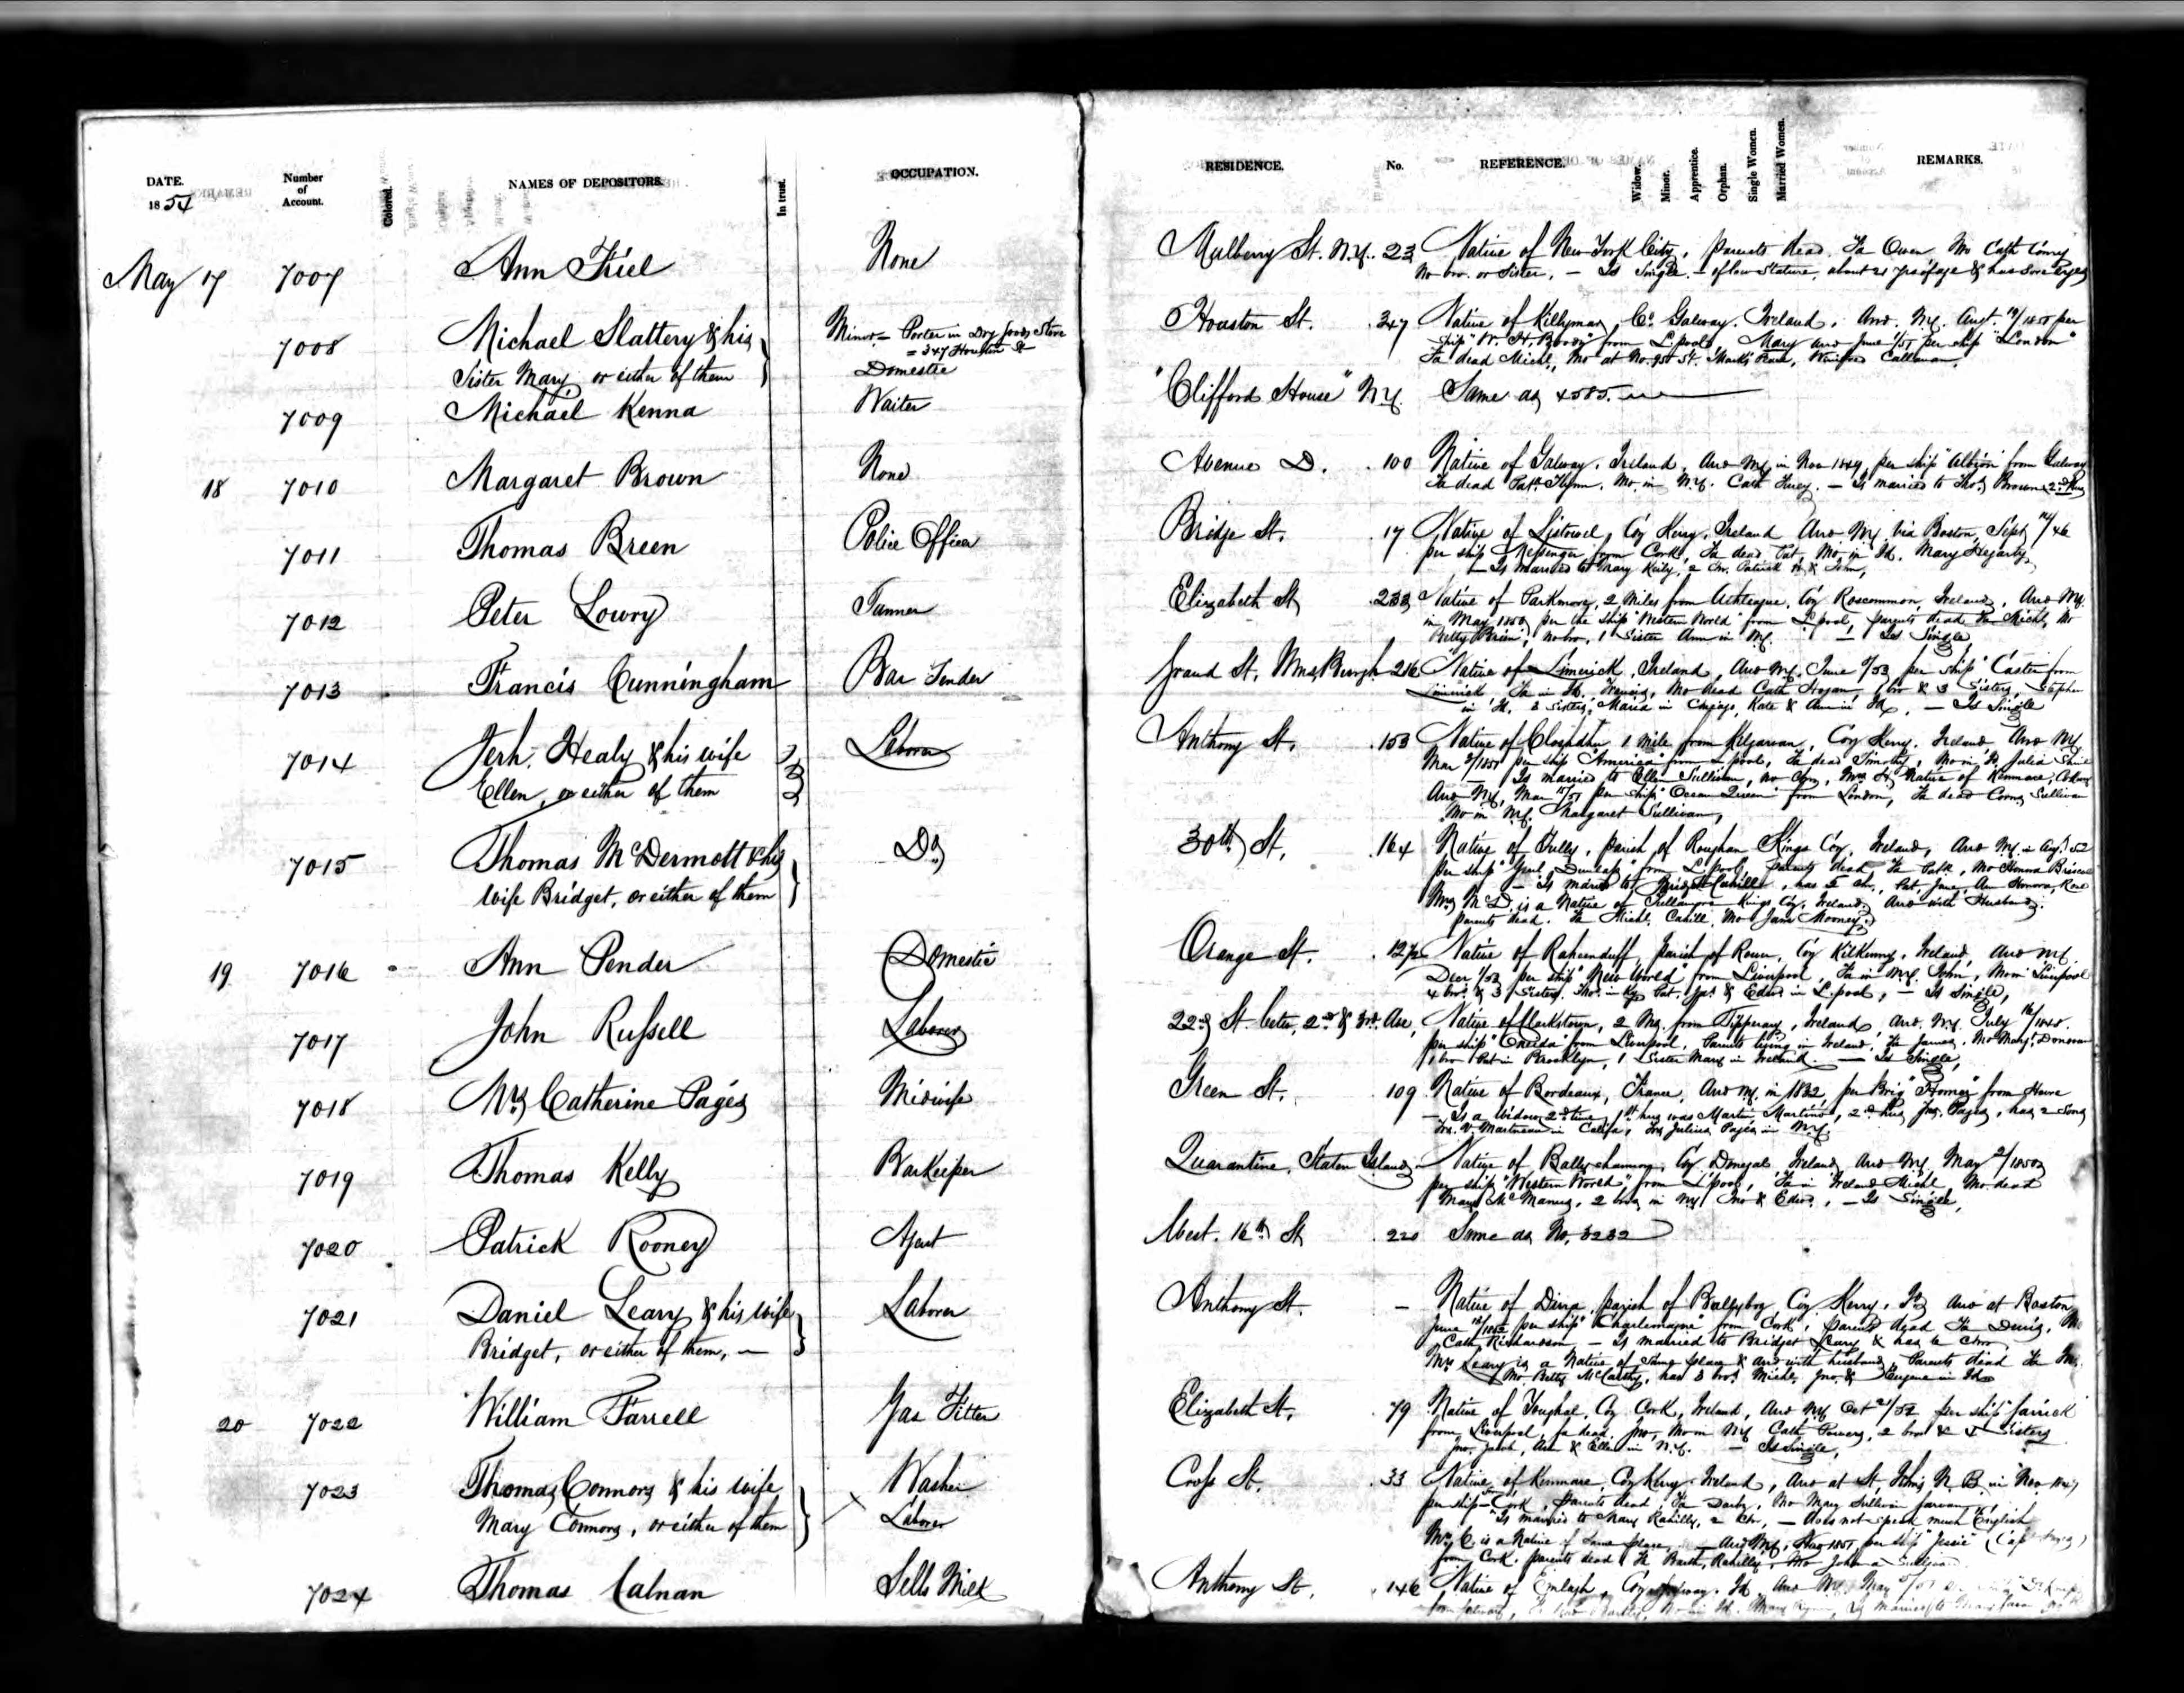 DATE.
1854
Number
of
Account.
Colored.
NAMES OF DEPOSITORS.
In trust.
OCCUPATION.
RESIDENCE.
No.
REFERENCE.
Widow.
Minor.
Apprentice.
Orphan.
Single Women.
Married Women.
REMARKS.
May 17 7007 Ann Fiel None Mulberry St. N.Y. 23 Native of New York City, parents dead. Fa Owen, Mo Cath
No bro. or Sister. — Is Single. — of low Stature, about 21 yrs of age & has sore Eyes
7008 Michael Slattery & his Minor = Porter in Dry Goods Store Houston St. 347 Native of Co. Galway. Ireland. Arrd. N.Y. Augt. 19/1850 per
= 347 Houston St
Sister Mary, or either of them Domestic
ship from L.pool, Mary arrd June /51 per ship "London"
Fa dead Michl., Mo at St. Marks Place, Winifred Callanan.
7009 Michael Kenna Waiter "Clifford House" N.Y. Same as 4585.
18 7010 Margaret Brown None Avenue D. 100 Native of Galway. Ireland, Arrd N.Y. in Nov 1849 per ship "Albion" from Galway
Fa dead Patk Flynn. Mo. in N.Y. Cath — Is married to Thos. Brown 2nd Hus
7011 Thomas Breen Police Officer Bridge St. 17 Native of Listowel, Coy Kerry, Ireland Arrd N.Y. via Boston, Sept 14/46
per ship Messenger from Cork, Fa dead Pat, Mo, in Id. Mary Hegarty,
— Is married to Mary Kiely, 2 chr. Patrick & John,
7012 Peter Lowry Tanner Elizabeth St 233 Native of Parkmore, 2 Miles from Athleague, Coy Roscommon, Ireland, Arrd N.Y.
in May 1850 per the ship "Western World" from L.pool, parents dead Fa Michl, Mo
Betty Brien, no bro, 1 Sister Ann in N.Y. — Is Single
7013 Francis Cunningham Bar Tender Grand St. WmsBurgh 216 Native of Limerick, Ireland, Arrd N.Y. June /53 per ship from
Limerick Fa in Id. Francis, Mo dead Cath Hogan, 1 bro & 3 Sisters, Stephen
in Id. 3 sisters, Maria in Chicago, Kate & Ann in Id, — Is Single
7014 Jerh. Healy & his wife Laborer Anthony St. 153 Native of 1 Mile from Kilgarvan, Coy Kerry. Ireland, Arrd N.Y.
Ellen, or either of them
per ship "America" from L.pool, Fa dead Timothy, Mo in Id, Julia
— Is married to Ellen Sullivan, no chn, Mrs H. Native of Kenmare,
Arrd N.Y. Mar per ship "Ocean Queen" from London, Fa dead Sullivan
Mo in N.Y. Margaret Sullivan,
7015 Thomas McDermott & his Do 30th St. 164 Native of Tully, parish of Kings Coy, Ireland, Arrd N.Y. in Augt. 52
wife Bridget, or either of them
per ship "Genl. Dunlap" from L.pool, parents dead Fa Patk, Mo
— Is married to Bridget Cahill, has 5 chr, Pat, Jane, Ann Honora,
Mrs McD is a Native of Kings Coy, Ireland, Arrd with Husband.
parents dead. Fa Michl. Cahill, Mo Jane Mooney.
19 7016 Ann Pender Domestic Orange St. 12½ Native of parish of Coy Kilkenny, Ireland, Arrd N.Y.
Decr 1/53 per ship "New World" from Liverpool, Fa in N.Y. John, Mo in Liverpool
4 bro. & 3 Sisters. Pat. Jas. & Edwd in L.pool, — Is Single,
7017 John Russell Laborer 22d St. betw. 2nd & 3rd. Ave, Native of Clarkstown, 2 Ms. from Tipperary, Ireland, Arrd. N.Y. July 16/1848.
per ship "Oneida" from Liverpool. Parents living in Ireland, Fa James, Mo Margt. Donovan
1 bro Pat in Brooklyn, 1 Sister Mary in Ireland. — Is Single,
7018 Mrs Catherine Pagés Midwife Green St. 109 Native of Bordeaux, France, Arrd N.Y. in 1832, per Brig "Homer" from Havre
— Is a Widow 2nd time, 1st hus was Martin 2nd Hus Pagés, has 2 Sons
V. Martineau in Califa, Julius Pagés in N.Y.
7019 Thomas Kelly BarKeeper Quarantine, Staten Island Native of Ballyshannon, Coy Donegal, Ireland, Arrd N.Y. May
per ship "Western World" from L'pool, Fa in Ireland Michl, Mo. dead
Mary McManus, 2 bros. in N.Y. Jno & Edwd. — Is Single,
7020 Patrick Rooney Agent West. 16th St 220 Same as No. 3232
7021 Daniel Leary & his wife Laborer Anthony St. — Native of parish of Coy Kerry, Id, Arrd at Boston
Bridget, or either of them, —
June per ship "Charlemagne" from Cork, parents dead Fa Denis, Mo
Cath Richardson — Is married to Bridget Leary & has 6 chn
Mrs Leary is a Native of Same place & Arrd with husband, Parents dead Fa
Mo. Betty McCarthy, has 3 bros Michl, Jno. & Eugene in Id
20 7022 William Farrell Gas Fitter Elizabeth St. 79 Native of Youghal, Coy Cork, Ireland, Arrd N.Y. Oct /52 per ship "Garrick"
from Liverpool, Fa dead, Jno, Mo in N.Y. Cath Powers, 2 bros & Sisters
Jno. Ann & Ellen in N.Y. — Is Single,
7023 Thomas Connors & his wife Washer Cross St. 33 Native of Kenmare, Coy Kerry Ireland, Arrd at St. Johns N.B. in Nov
Mary Connors, or either of them Laborer
per ship Cork, parents dead, Fa Darby, Mo Mary Sullivan
Is married to Mary Rahilly, 2 chr, — does not speak much English
Mrs C. is a Native of Same place, — Arrd N.Y. 1851, per ship "Jessie"
from Cork. parents dead Fa Barth, Rahilly, Mo
7024 Thomas Calnan Sells Milk Anthony St. 146 Native of Coy Galway. Id, Arrd N.Y. May